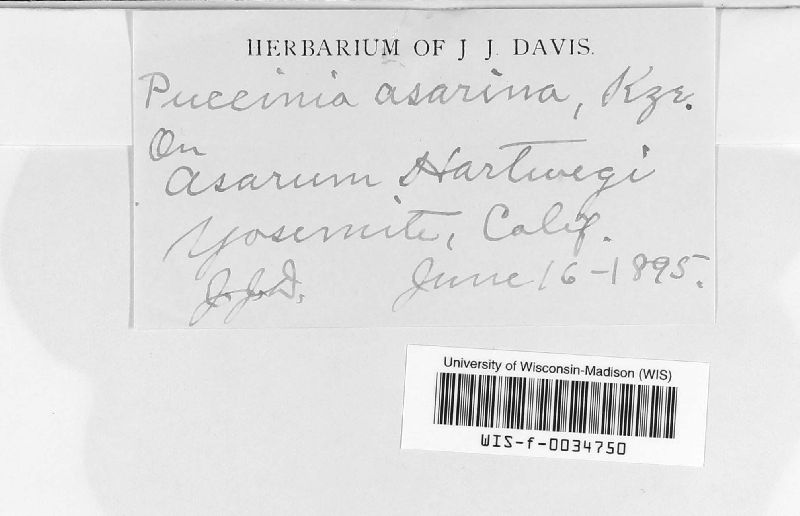 HERBARIUM OF J. J. DAVIS.
Puccinia asarina, Kze.
On
Asarum Hartwegi
Yosemite, Calif.
J.J.D. June 16-1895.
University of Wisconsin-Madison (WIS)
WIS-f-0034750